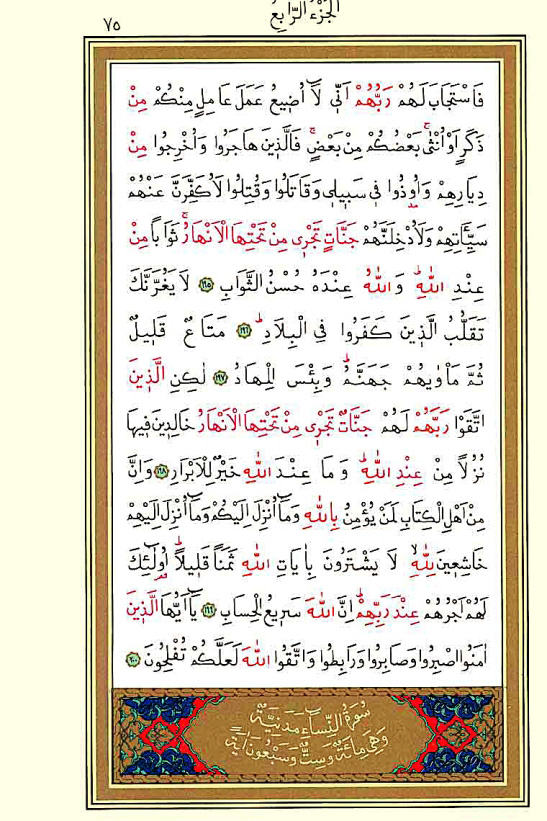 الجزء الرابع
٧٥
فَاسْتَجَابَ لَهُمْ رَبُّهُمْ اَنّ۪ي لَٓا اُض۪يعُ عَمَلَ عَامِلٍ مِنْكُمْ مِنْ
ذَكَرٍ اَوْ اُنْثٰىۚ بَعْضُكُمْ مِنْ بَعْضٍۚ فَالَّذ۪ينَ هَاجَرُوا وَاُخْرِجُوا مِنْ
دِيَارِهِمْ وَاُو۫ذُوا ف۪ي سَب۪يل۪ي وَقَاتَلُوا وَقُتِلُوا لَاُكَفِّرَنَّ عَنْهُمْ
سَيِّـَٔاتِهِمْ وَلَاُدْخِلَنَّهُمْ جَنَّاتٍ تَجْر۪ي مِنْ تَحْتِهَا الْاَنْهَارُۚ ثَوَاباً مِنْ
عِنْدِ اللّٰهِۜ وَاللّٰهُ عِنْدَهُ حُسْنُ الثَّوَابِ ﴿١٩٥﴾ لَا يَغُرَّنَّكَ
تَقَلُّبُ الَّذ۪ينَ كَفَرُوا فِي الْبِلَادِۜ ﴿١٩٦﴾ مَتَاعٌ قَل۪يلٌ
ثُمَّ مَأْوٰيهُمْ جَهَنَّمُۜ وَبِئْسَ الْمِهَادُ ﴿١٩٧﴾ لٰكِنِ الَّذ۪ينَ
اتَّقَوْا رَبَّهُمْ لَهُمْ جَنَّاتٌ تَجْر۪ي مِنْ تَحْتِهَا الْاَنْهَارُ خَالِد۪ينَ ف۪يهَا
نُزُلاً مِنْ عِنْدِ اللّٰهِۜ وَمَا عِنْدَ اللّٰهِ خَيْرٌ لِلْاَبْرَارِ ﴿١٩٨﴾ وَاِنَّ
مِنْ اَهْلِ الْكِتَابِ لَمَنْ يُؤْمِنُ بِاللّٰهِ وَمَٓا اُنْزِلَ اِلَيْكُمْ وَمَٓا اُنْزِلَ اِلَيْهِمْ
خَاشِع۪ينَ لِلّٰهِۙ لَا يَشْتَرُونَ بِاٰيَاتِ اللّٰهِ ثَمَناً قَل۪يلاًۜ اُو۬لٰٓئِكَ
لَهُمْ اَجْرُهُمْ عِنْدَ رَبِّهِمْۜ اِنَّ اللّٰهَ سَر۪يعُ الْحِسَابِ ﴿١٩٩﴾ يَٓا اَيُّهَا الَّذ۪ينَ
اٰمَنُوا اصْبِرُوا وَصَابِرُوا وَرَابِطُوا وَاتَّقُوا اللّٰهَ لَعَلَّكُمْ تُفْلِحُونَ ﴿٢٠٠﴾
سُورَةُ النِّسَاءِ مَدَنِيَّةٌ
وَهِيَ مِائَةٌ وَسِتٌّ وَسَبْعُونَ اٰيَةً